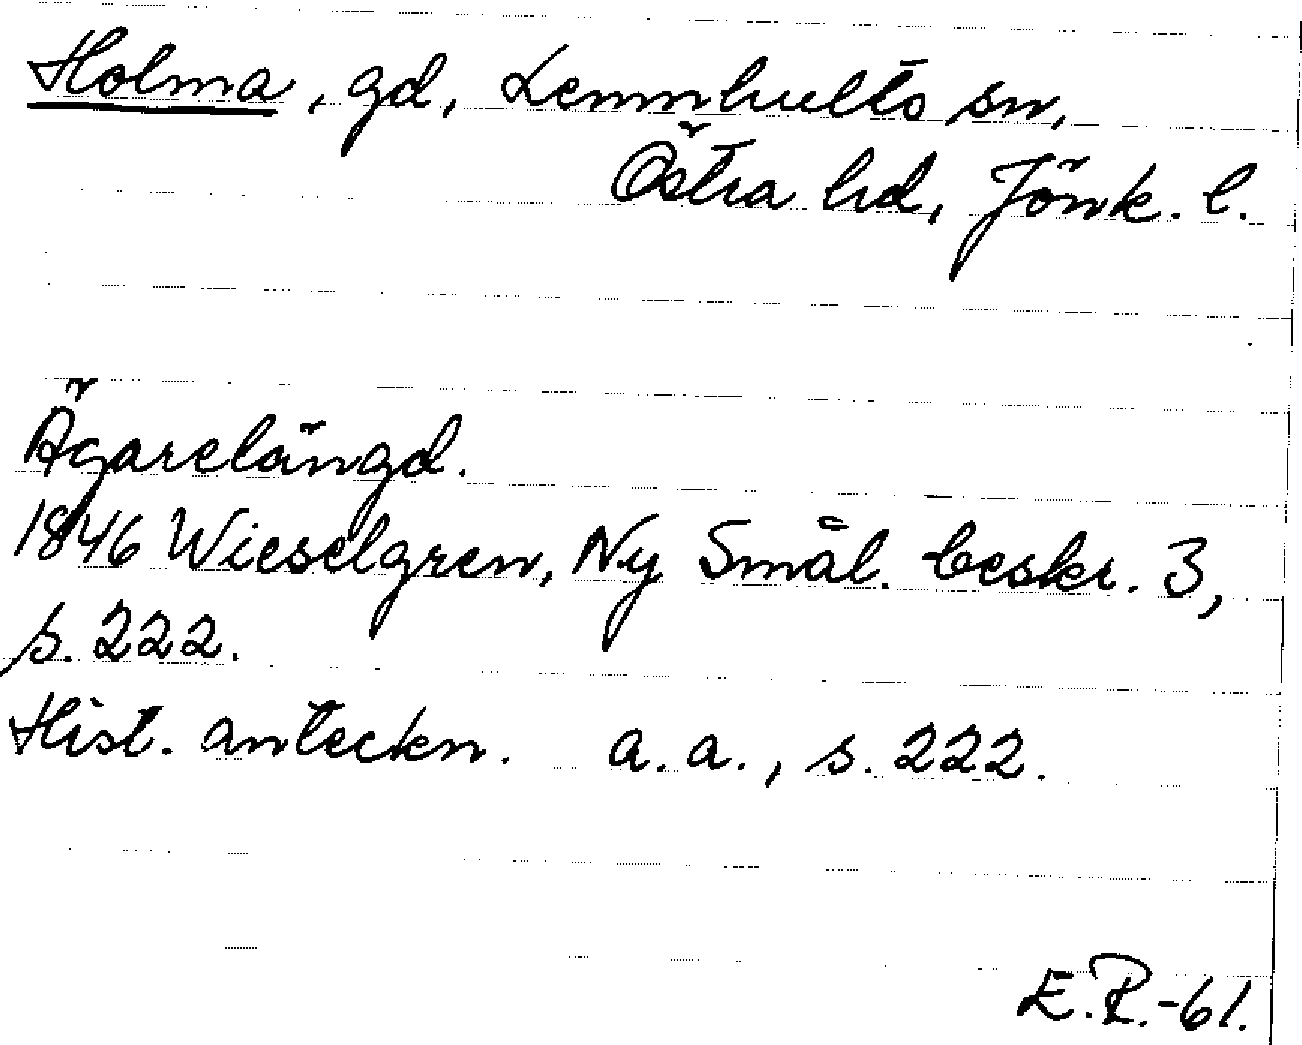 Holma, gd, Lemnhults sn,
Östra hd, Jönk. l.
Ägarelängd.
1846 Wieselgren, Ny Smål. beskr. 3,
s. 222.
Hist. anteckn. a.a., s. 222.
E.R.-61.